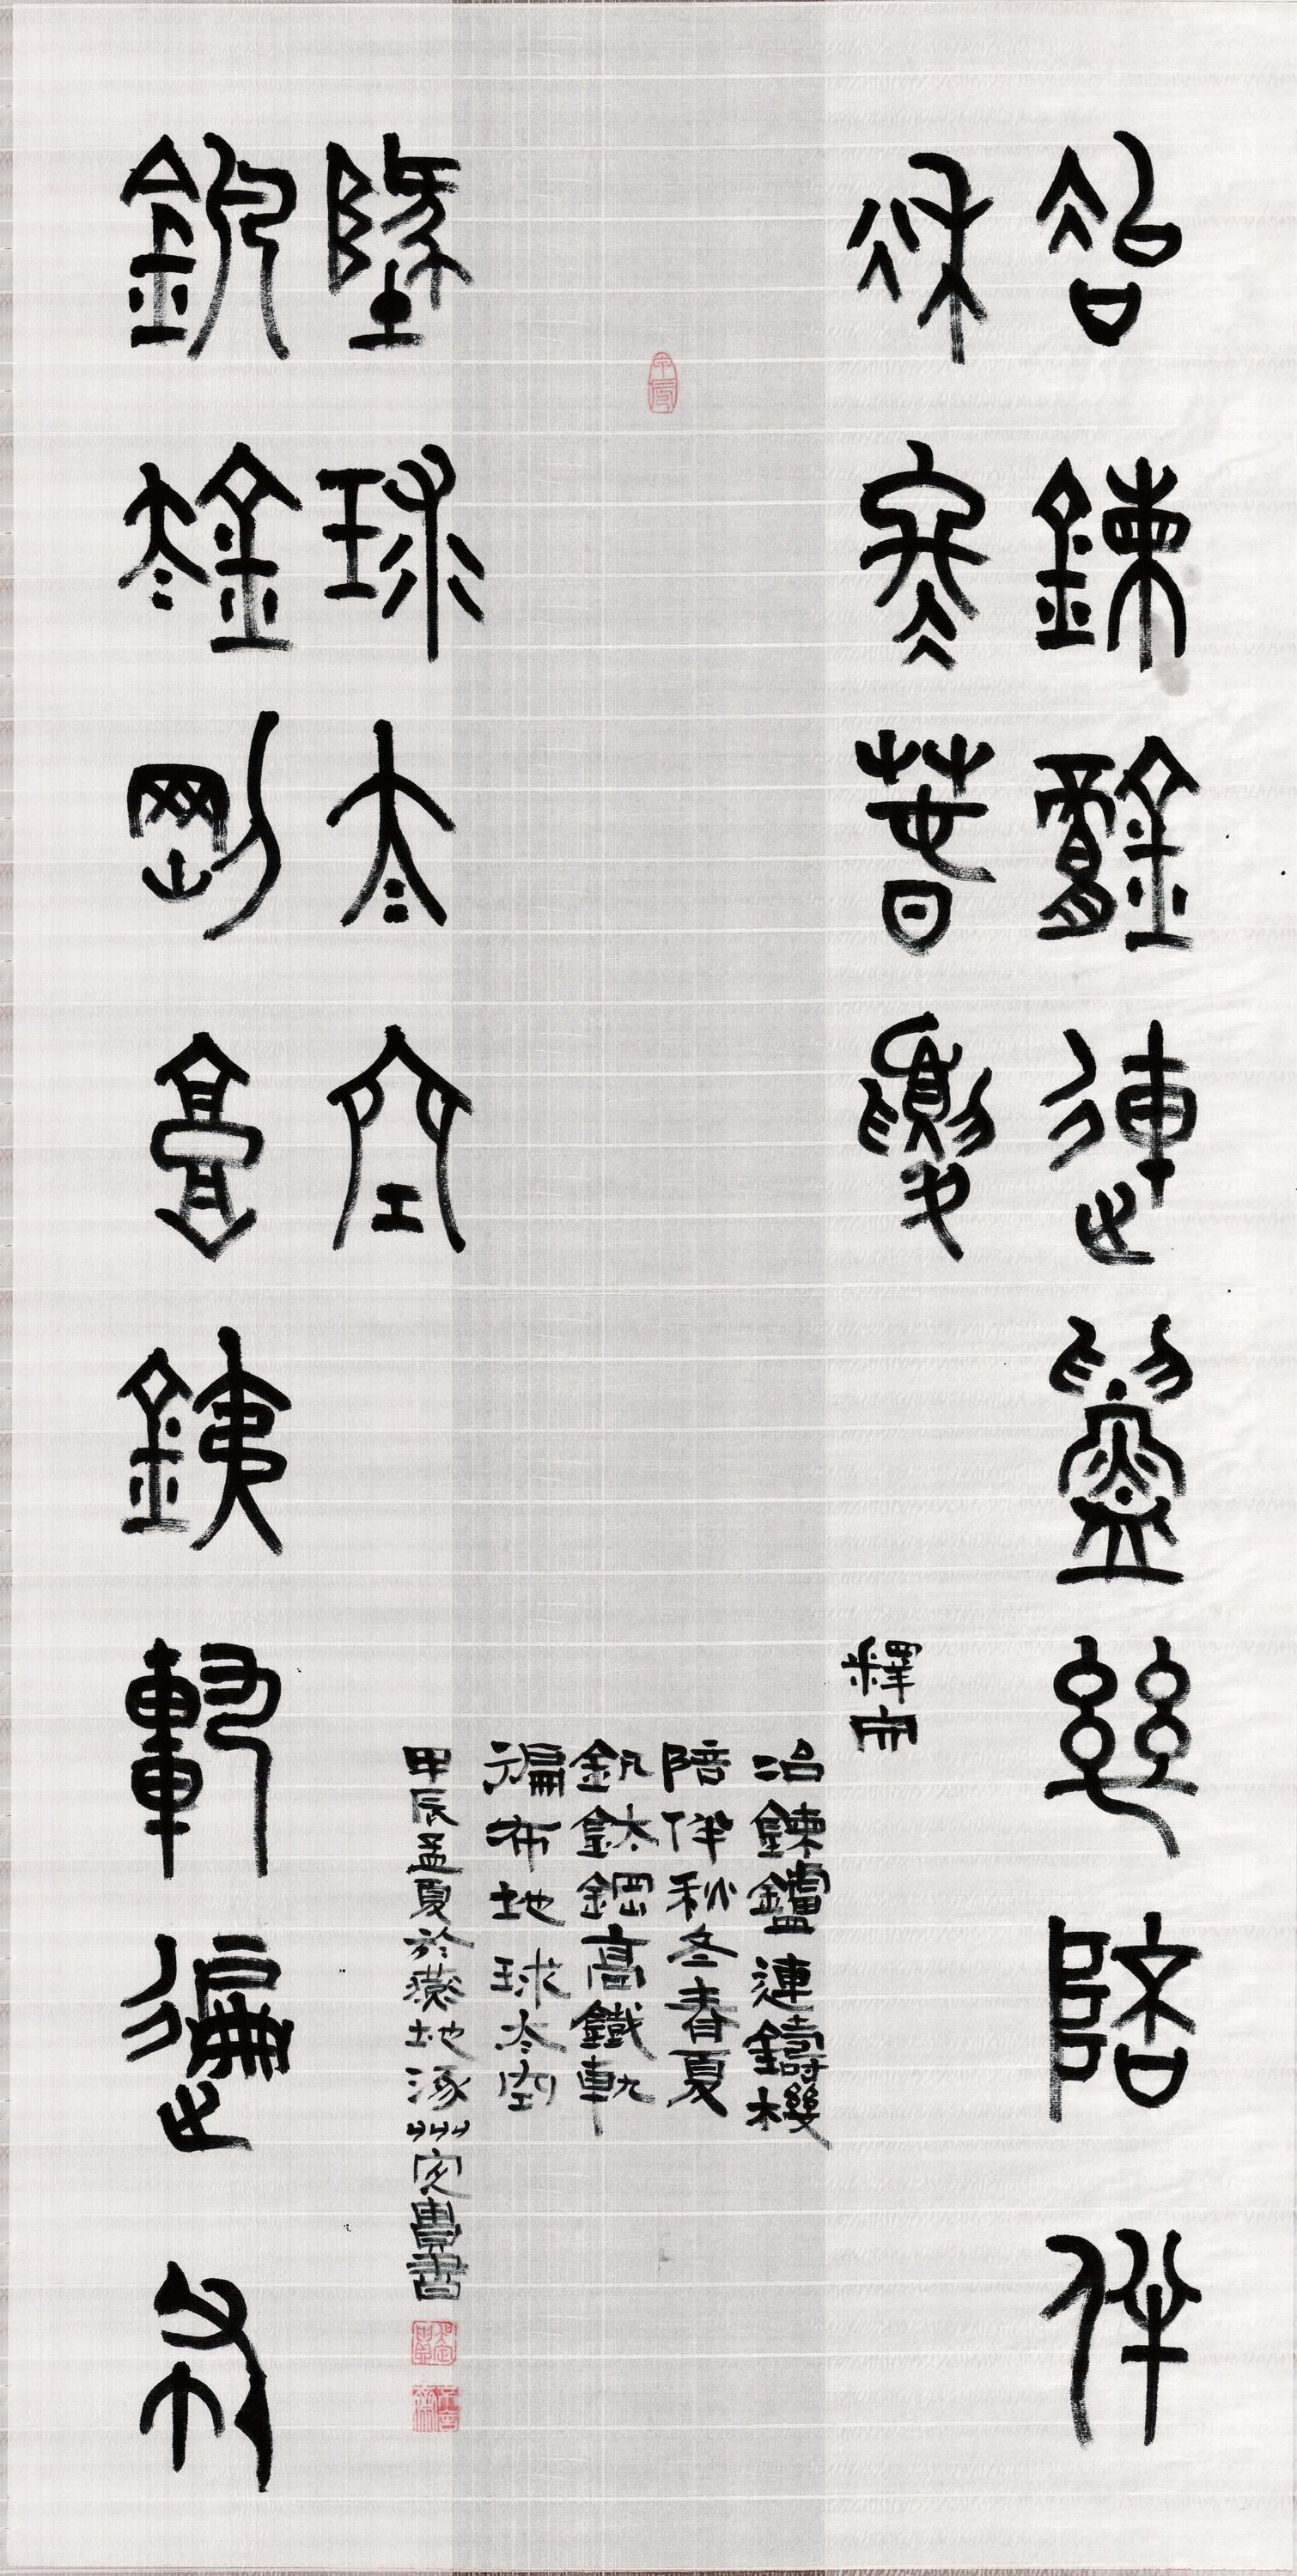 冶鍊鑪連鑄機陪伴
秋冬春夏
釩鈦鋼高鐵軌遍布
地球太空
釋文
冶鍊鑪連鑄機
陪伴秋冬春夏
釩鈦鋼高鐵軌
徧布地球太空
甲辰孟夏於燕地涿州書